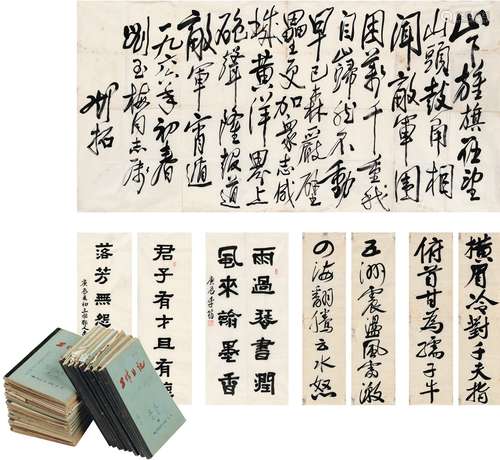 山下旌旗在望
山頭鼓角相
聞敵軍圍
困萬千重我
自巋然不動
早已森嚴壁
壘更加衆志成
城黃洋界上
砲聲隆報道
敵軍宵遁
一九六六年初春
劉玉梅同志屬
橫眉冷對千夫指
俯首甘為孺子牛
五洲震盪風雷激
四海翻騰雲水怒
雨過琴書潤
風來翰墨香
君子有才且有
落芳無怨
工作日記